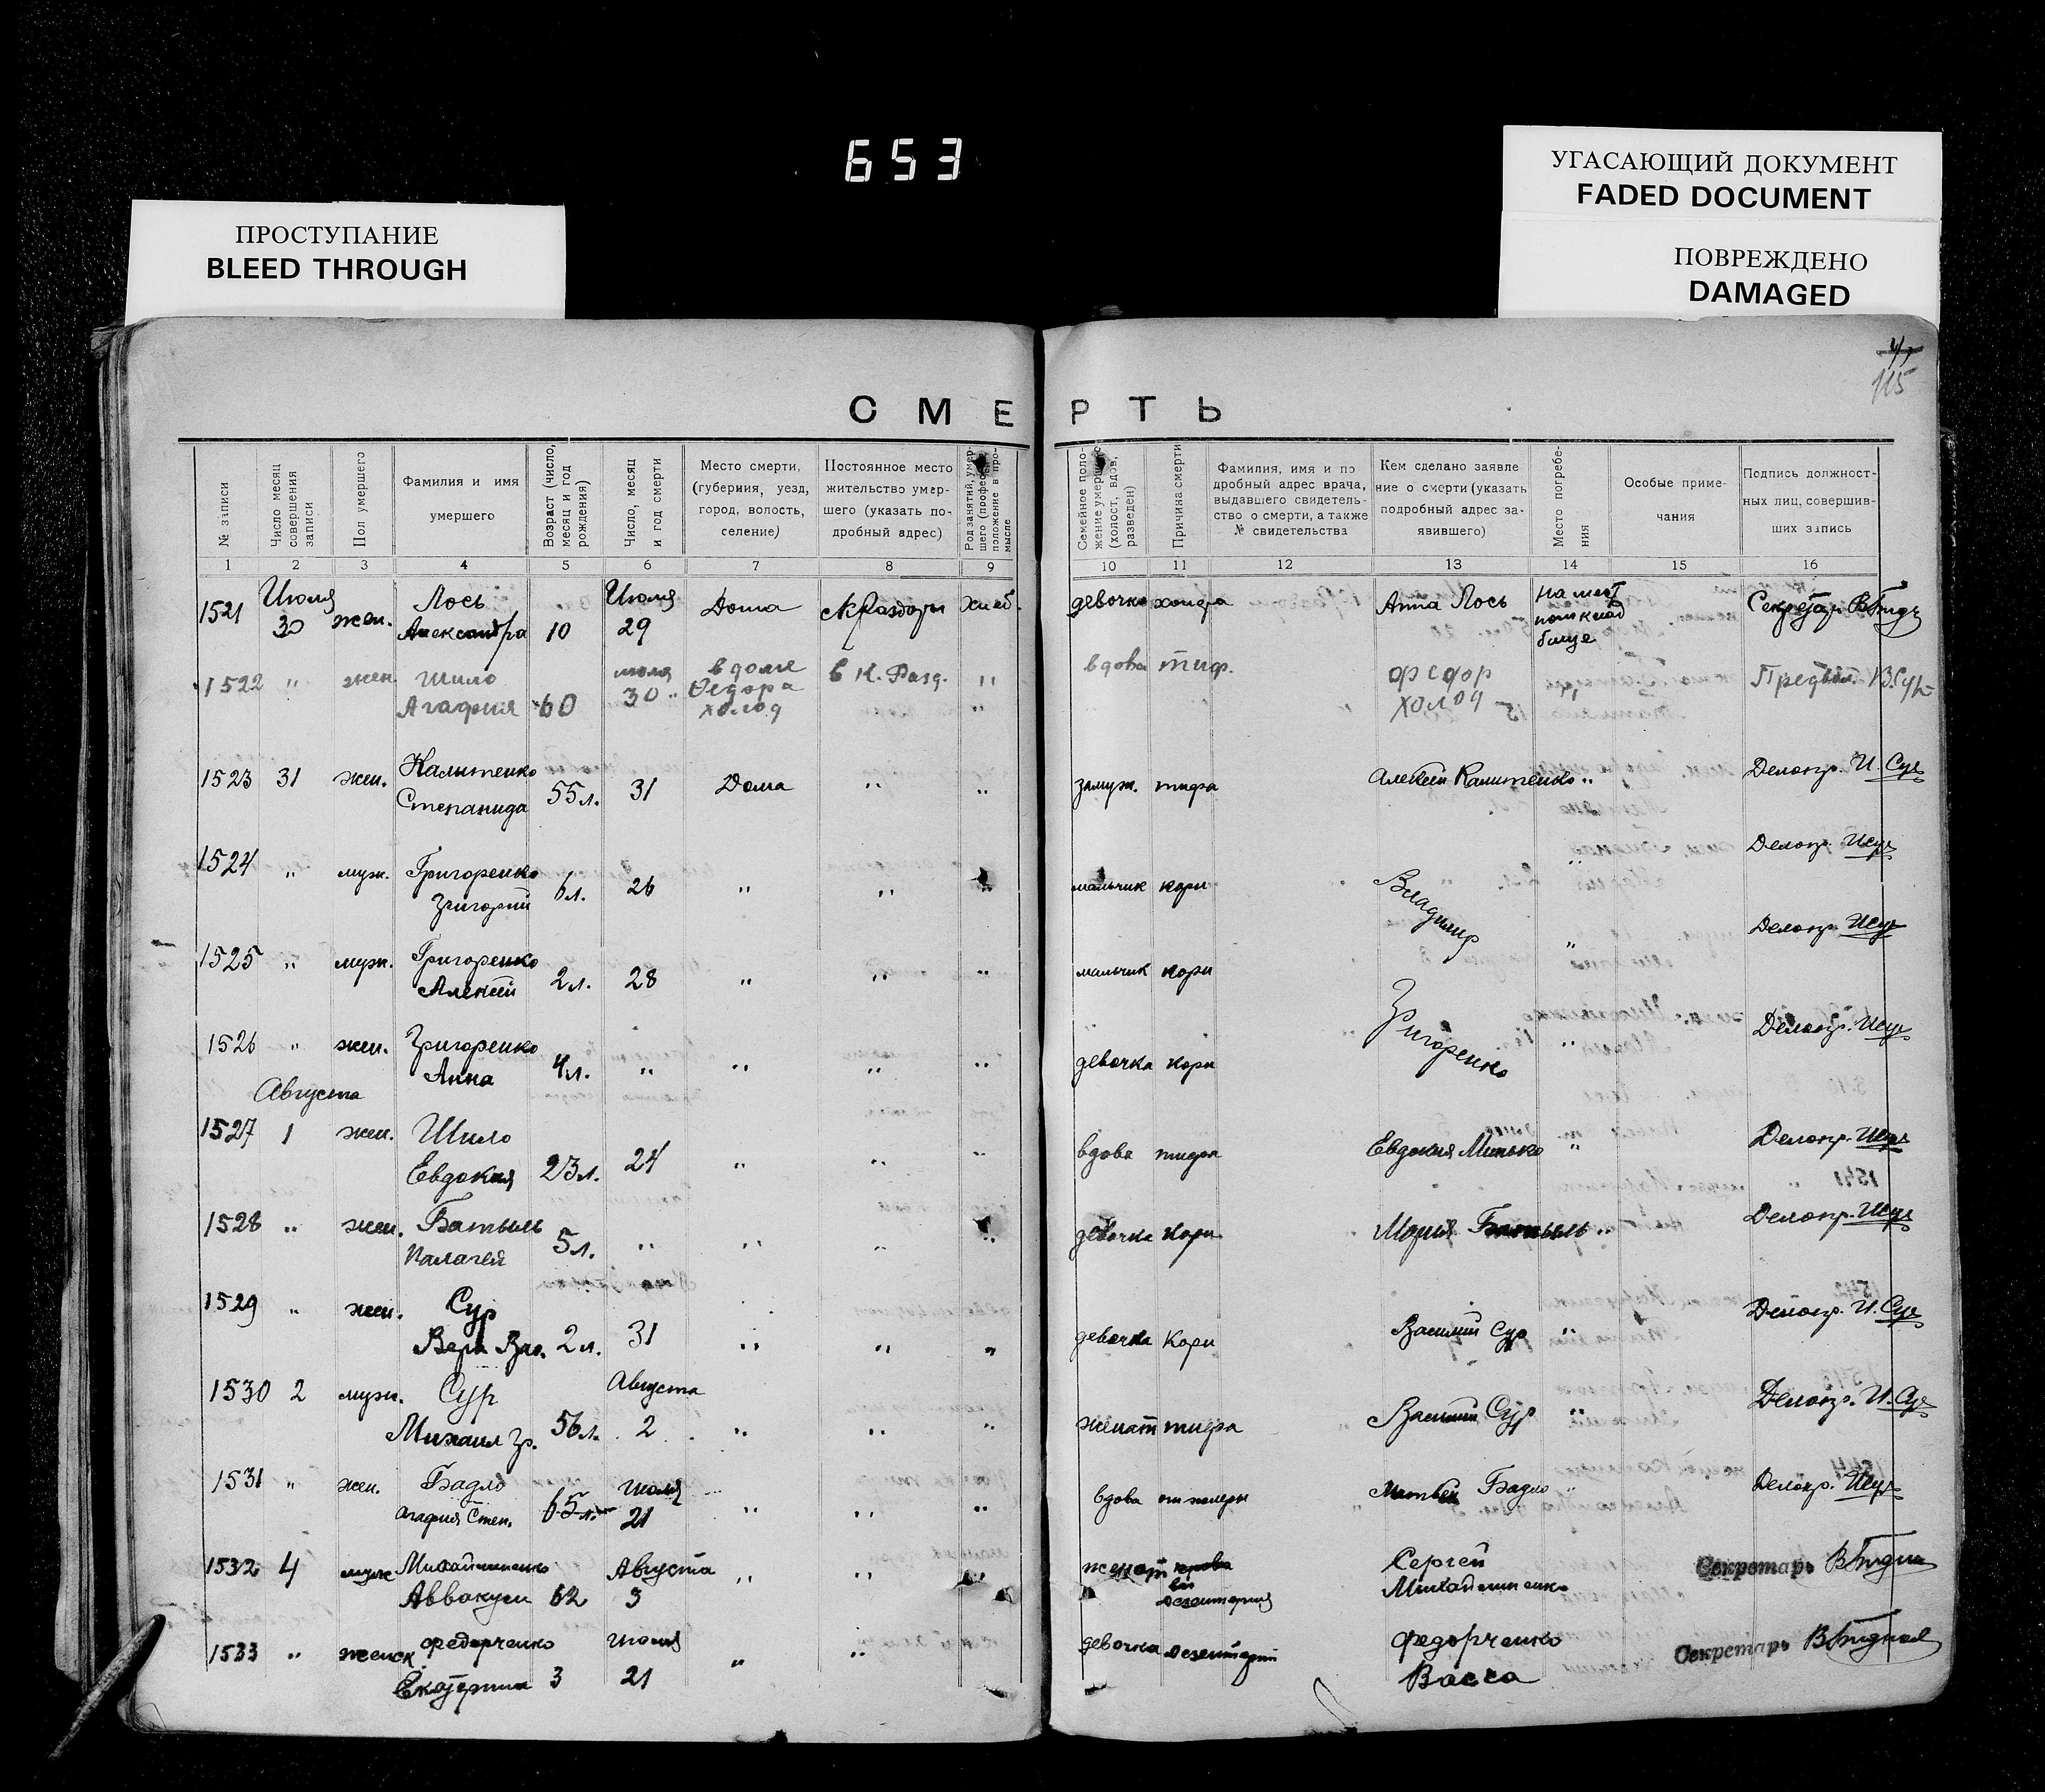 653
УГАСАЮЩИЙ ДОКУМЕНТ
FADED DOCUMENT
ПРОСТУПАНИЕ
BLEED THROUGH
ПОВРЕЖДЕНО
DAMAGED
115
СМЕРТЬ
№ записи
Число месяц совершения записи
Пол умершего
Фамилия и имя умершего
Возраст (число, месяц и год рождения)
Число, месяц и год смерти
Место смерти, (губерния, уезд, город, волость, селение)
Постоянное место жительство умершего (указать подробный адрес)
Род занятий, умершего (професс. положение в промысле
Семейное положение умершего (холост, вдов, разведен)
Причина смерти
Фамилия, имя и подробный адрес врача, выдавшего свидетельство о смерти, а также № свидетельства
Кем сделано заявление о смерти (указать подробный адрес заявившего)
Место погребения
Особые примечания
Подпись должностных лиц, совершивших запись
1 2 3 4 5 6 7 8 9 10 11 12 13 14 15 16
1521 Июля 30 жен. Лось Александра 10 Июля 29 Дома девочка Анна Лось Секретарь
1522 " жен. Шило Агафия 60 июля 30 в доме Федора холод в К. Разд. " вдова тиф. федор холод "
1523 31 жен. Калитенко Степанида 55 л. 31 Дома " " замуж. тифа Алексей Калитенко " Делопр. И. Сур
1524 " муж. Григоренко Григорий 6 л. 26 " " " мальчик кори Владимир " Делопр. ИСур
1525 " муж. Григоренко Алексий 2 л. 28 " " " мальчик кори " Делопр. ИСур
1526 " жен. Григоренко Анна 4 л. " " " " девочка кори Григоренко " Делопр. ИСур
Августа
1527 1 жен. Шило Евдокия 23 л. 24 " " " вдова тифа Евдокия Минько " Делопр. ИСур
1528 " жен. Батыль Палагея 5 л. " " " " девочка кори Мария Батыль " Делопр. ИСур
1529 " жен. Сур Вера Вас. 2 л. 31 " " " девочка кори Василий Сур " Делопр. И. Сур
1530 2 муж. Сур Михаил Гр. 56 л. Августа 2 " " " женат тифа Василий Сур " Делопр. И. Сур
1531 " жен. Бадло Агафия Степ. 65 л. июля 21 " " " вдова от холеры Матвей Бадло " Делопр. ИСур
1532 4 муж Михайличенко Аввакум 62 Августа 3 " " женат Сергей Михайличенко Секретарь
1533 " женск. Федорченко Екатерина 3 июля 21 " " девочка Федорченко Васса Секретарь